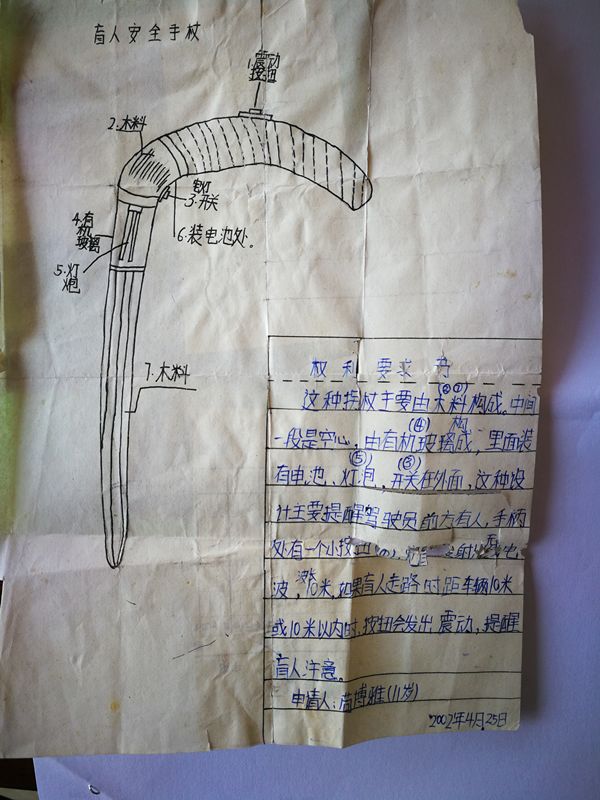 盲人安全手杖
1.震动
按钮
2.木料
3.开关
4.有
机
玻璃
5.灯
炮
6.装电池处。
7.木料
权利要求
(2)(7)
这种持杖主要由木料构成。中间
(4) 构
一段是空心,由有机玻璃成,里面装
(5) (3)
有电池、灯泡,开关在外面,这种设
计主要提醒驾驶员前方有人,手柄
处有一个小按 射 电
波, 10米,如果盲人走路时距车辆10米
或10米以内时,按钮会发出震动,提醒
盲人注意。
申请人: 博雅(11岁)
2002年4月25日